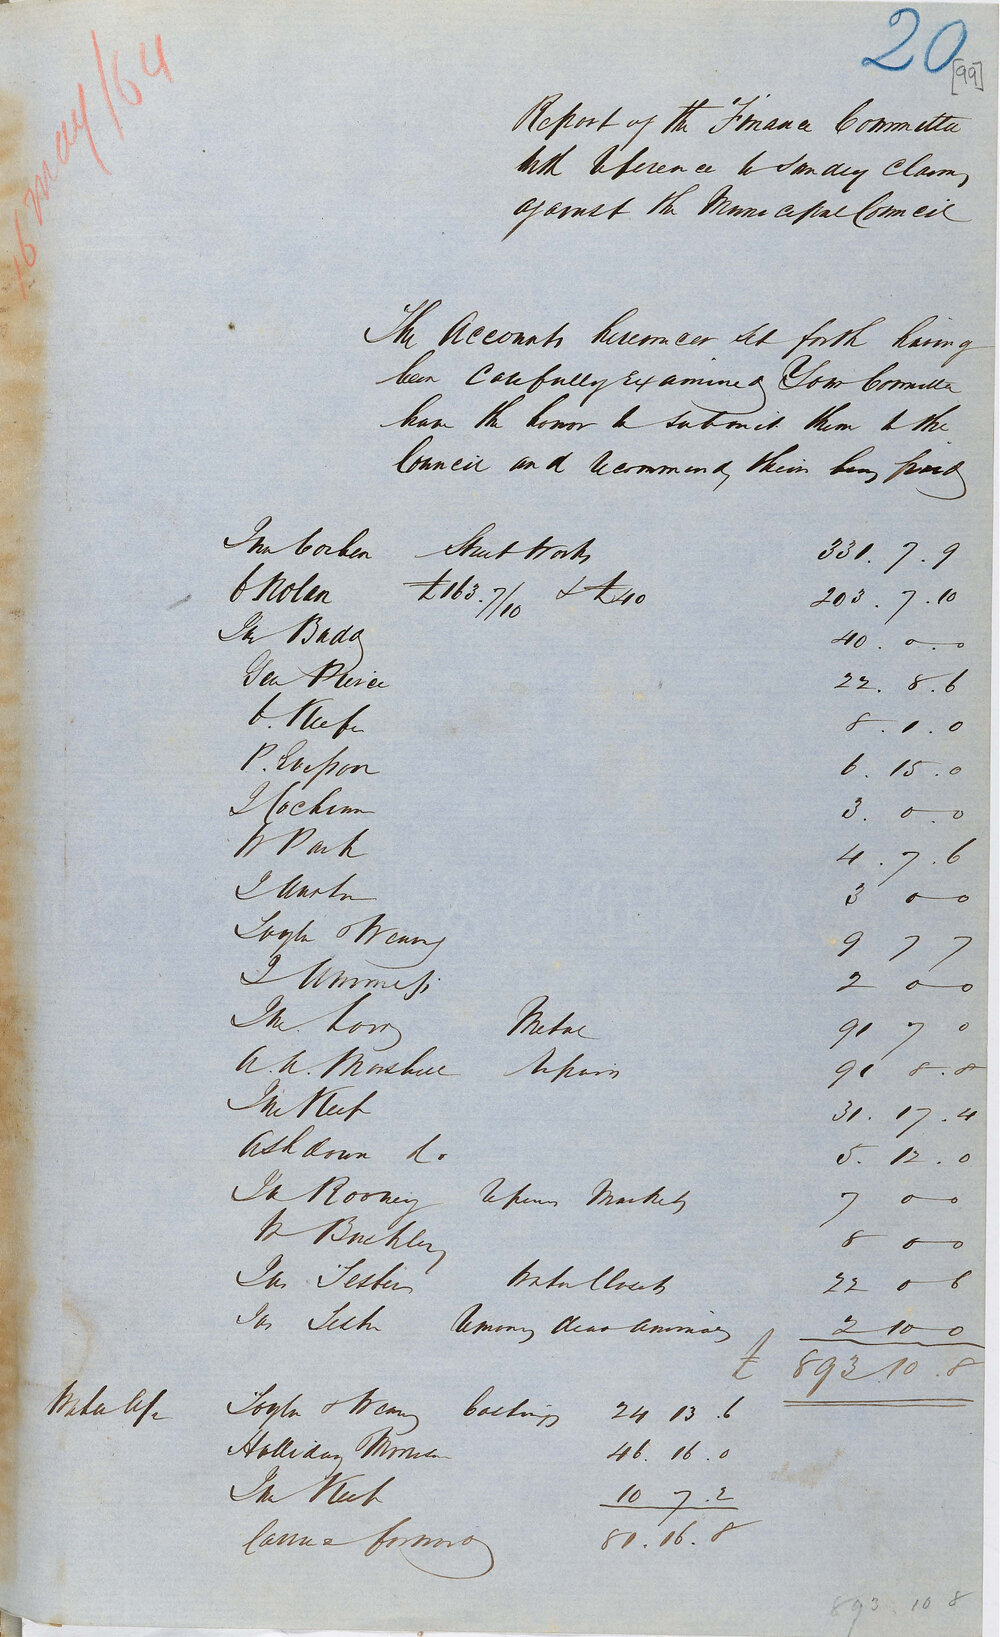 20
[99]
16 May/64
Report of the Finance Committee
with reference to Sundry Claims
against the Municipal Council
The Accounts hereunder set forth having
been Carefully Examined Your Committee
have the honor to submit them to the
Council and recommend their being paid
Jno Corben Street Works 331. 7. 9
J Nolan £163.7/10 & £40 203. 7. 10
Budd 40. 0. 0
Geo Pierce 22. 8. 6
8. 1. 0
P. 6. 15. 0
J Cochran 3. 0. 0
W Park 4. 7. 6
J 3 0 0
9 7 7
J 2 0 0
Jno. Metal 91 7 0
A. A. Marshall repairs 91 8. 8
Jno Keep 31. 17. 4
Ashdown do 5. 12. 0
Rooney repairs Markets 7 0 0
W Buckley 8 0 0
Jas Water Closets 22 0 6
Jas removing dead animals 2 10 0
£ 893. 10. 8
Water Castings 24 13. 6
Holliday 46. 16. 0
Jno Keep 10 7. 2
Carried forward 81. 16. 8
893 10 8